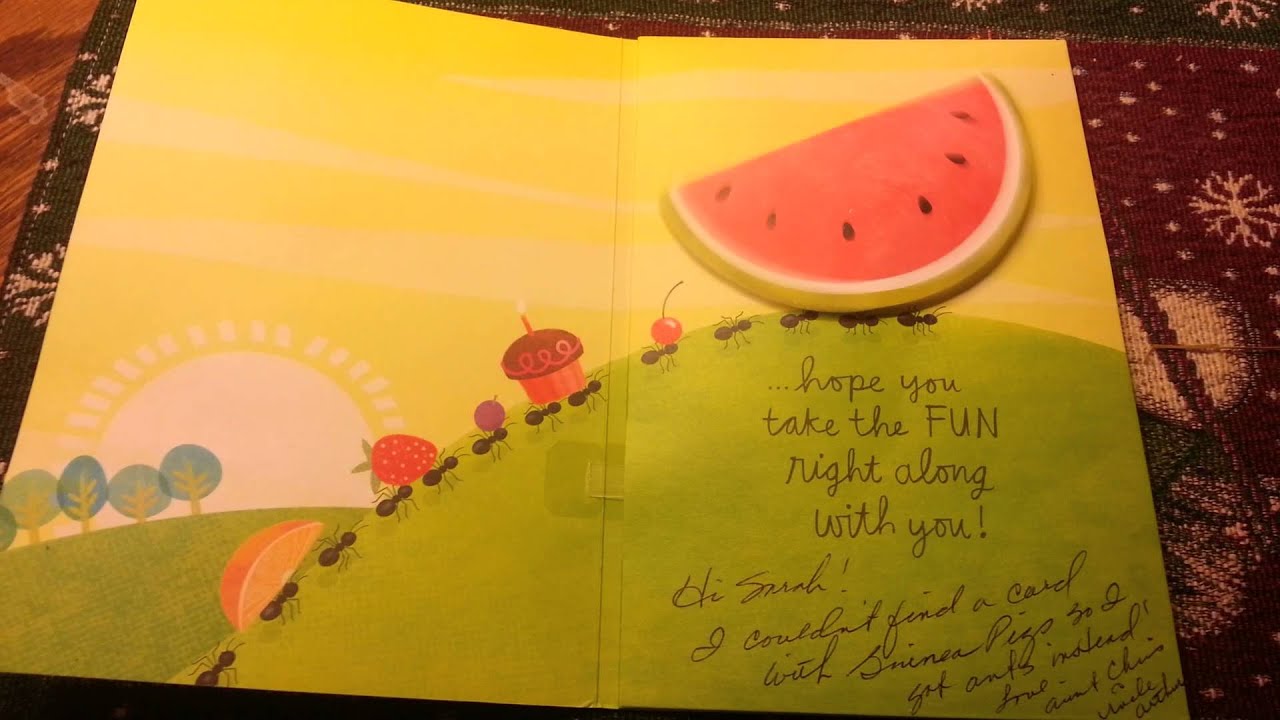 ...hope you
take the FUN
right along
with you!
Hi Sarah!
I couldn't find a card
with Guinea Pigs so I
got ants instead!
Love
aunt Chris
uncle